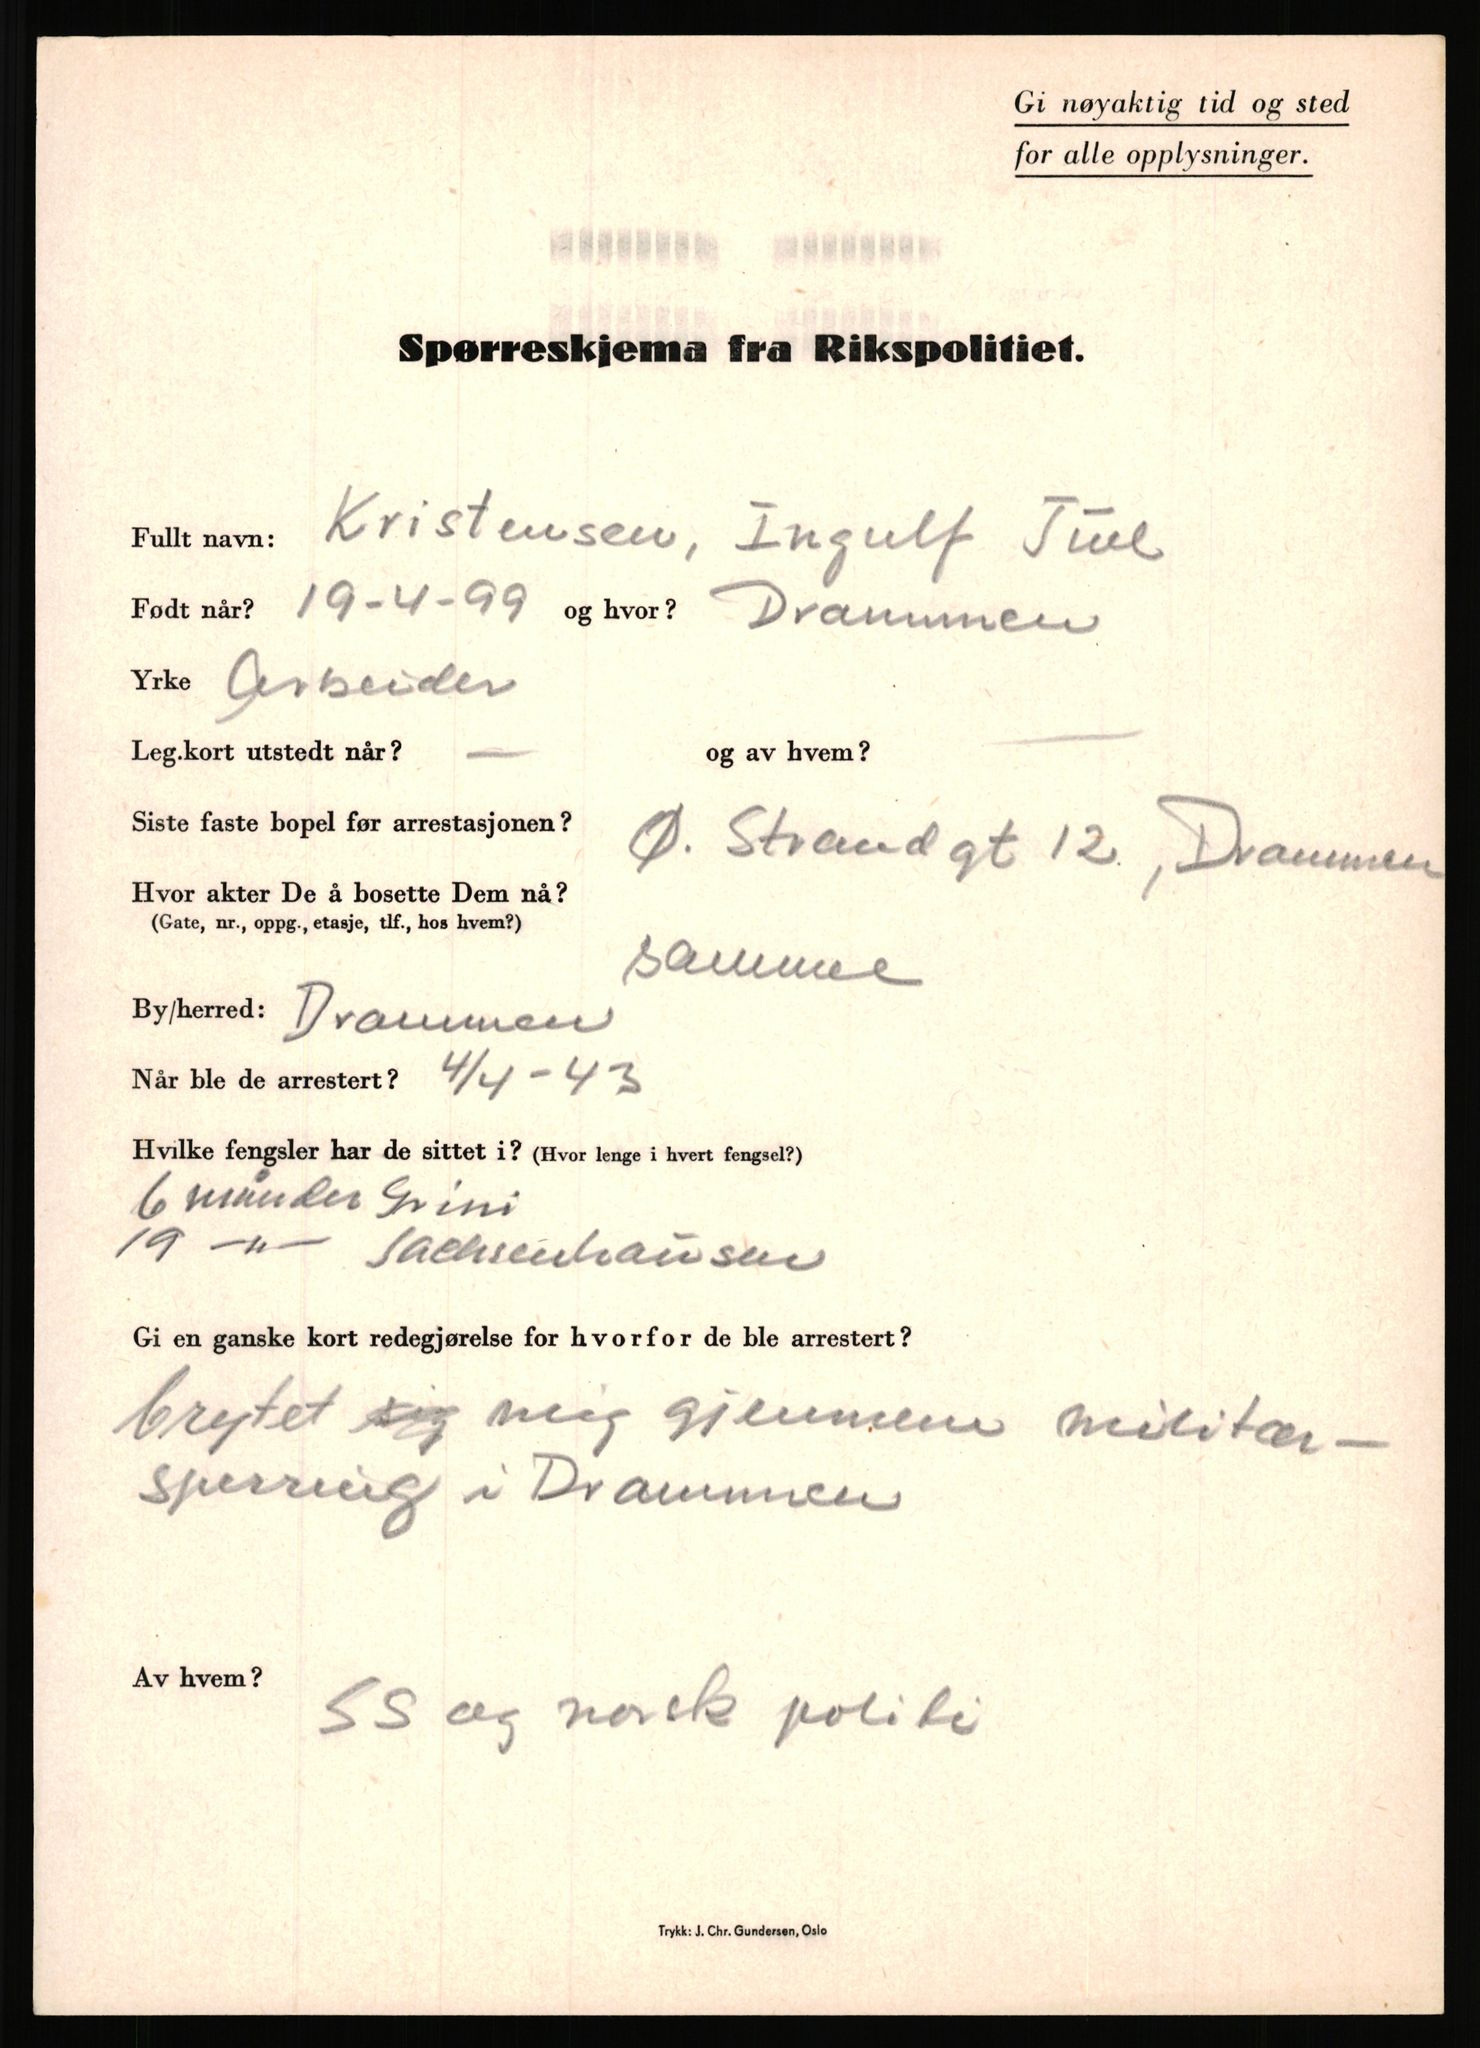 Gi nøyaktig tid og sted
for alle opplysninger.
Spørreskjema fra Rikspolitiet.
Fullt navn: Kristensen, Ingulf
Født når? 19-4-99 og hvor? Drammen
Yrke Arbeider
Leg.kort utstedt når? — og av hvem? —
Siste faste bopel før arrestasjonen? Ø. Strandgt 12, Drammen
Hvor akter De å bosette Dem nå?
(Gate, nr., oppg., etasje, tlf., hos hvem?)
samme
By/herred: Drammen
Når ble de arrestert? 4/4-43
Hvilke fengsler har de sittet i? (Hvor lenge i hvert fengsel?)
6 månder Grini
19 —"— Sachsenhausen
Gi en ganske kort redegjørelse for hvorfor de ble arrestert?
brytet sig mig gjennem militær-
sperring i Drammen
Av hvem? SS og norsk politi
Trykk: J. Chr. Gundersen, Oslo